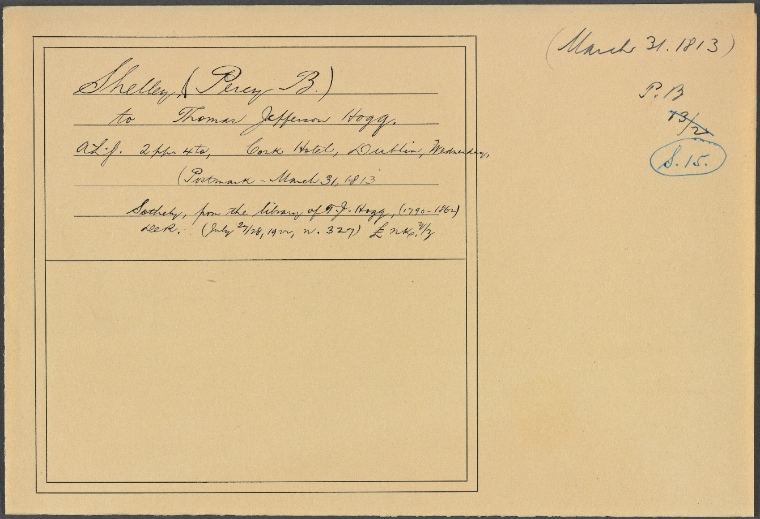 (March 31. 1813)
P. B
13/2
S. 15.
Shelley, (Percy B.)
to Thomas Jefferson Hogg.
A.L.S. 2 pp. 4to, Cork Hotel, Dublin, Wednesday,
(Postmark - March 31, 1813
Sotheby, from the library of T. J. Hogg, (1790-1862)
(July 27/28, 1922, n. 327) £